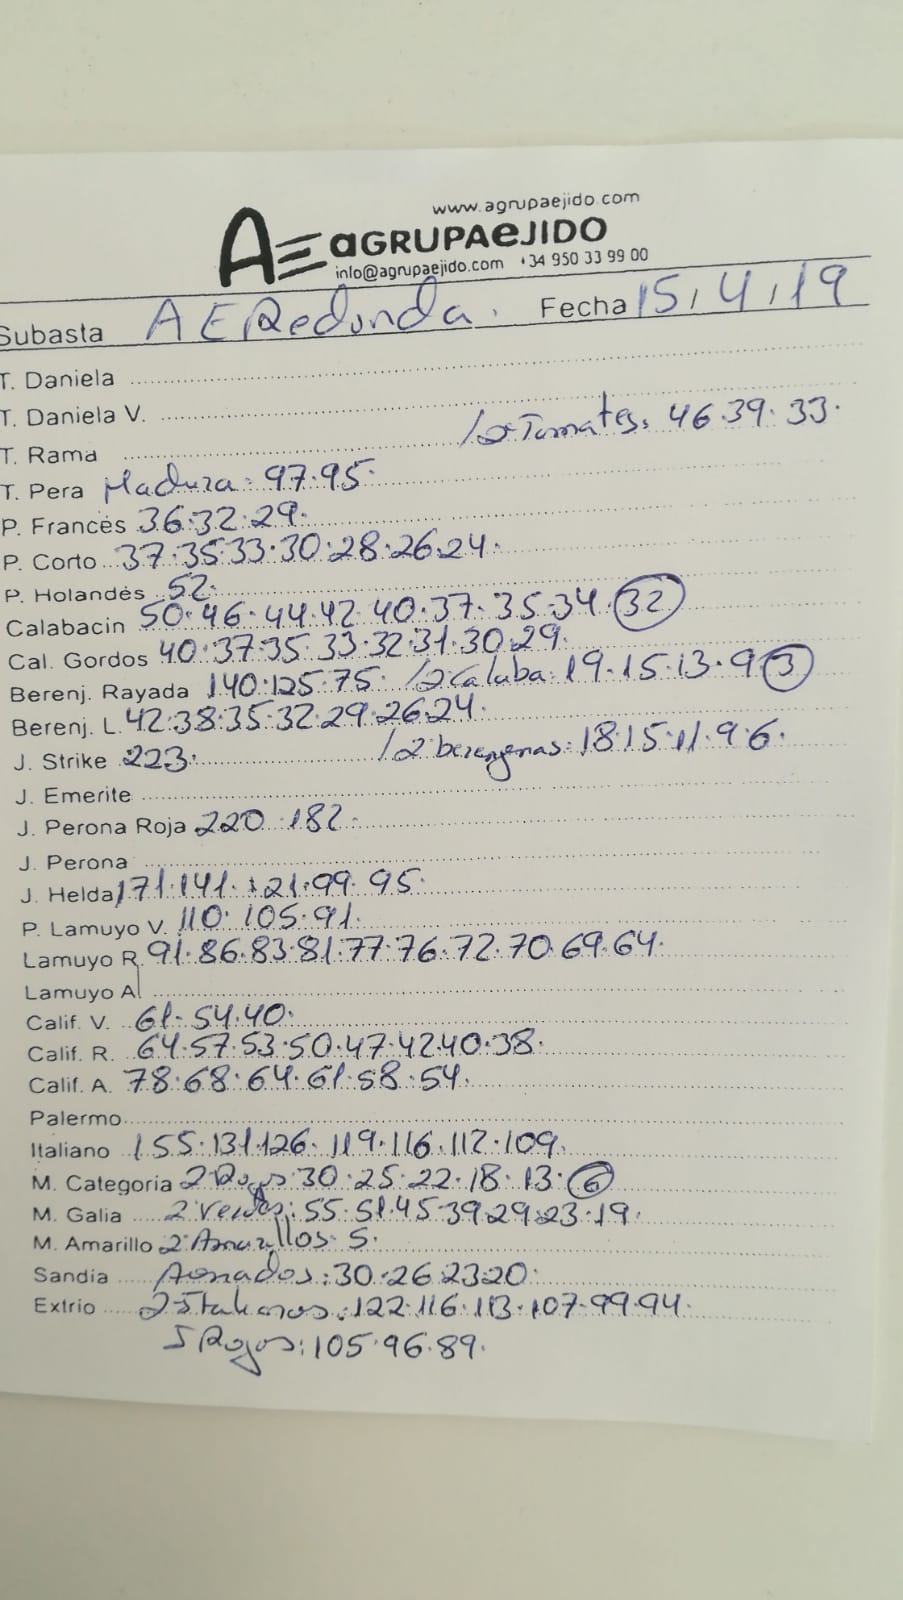 www.agrupaejido.com
AE aGRUPAeJIDO
info@agrupaejido.com +34 950 33 99 00
Subasta AERedonda. Fecha 15/4/19
T. Daniela
T. Daniela V.
T. Rama /2ª Tomates: 46.39.33.
T. Pera Madura: 97.95.
P. Francés 36.32.29.
P. Corto 37.35.33.30.28.26.24.
P. Holandés 52.
Calabacin 50.46.44.42.40.37.35.34.32
Cal. Gordos 40.37.35.33.32.31.30.29.
Berenj. Rayada 140.125.75. /2ª Calaba: 19.15.13.9.3
Berenj. L. 42.38.35.32.29.26.24.
J. Strike 223. /2ª berengenas: 18.15.11.9.6.
J. Emerite
J. Perona Roja 220.182.
J. Perona
J. Helda 171.141.121.99.95.
P. Lamuyo V. 110.105.91.
Lamuyo R. 91.86.83.81.77.76.72.70.69.64.
Lamuyo A
Calif. V. 61.54.40.
Calif. R. 64.57.53.50.47.42.40.38.
Calif. A. 78.68.64.61.58.54.
Palermo
Italiano 155.131.126.119.116.112.109.
M. Categoria 2ª Rojos: 30.25.22.18.13.6
M. Galia 2ª Verdes: 55.51.45.39.29.23.19.
M. Amarillo 2ª Amarillos: 5.
Sandia Asurados: 30.26.23.20.
Extrio 2ª Italianos: 122.116.113.107.99.94.
I Rojos: 105.96.89.